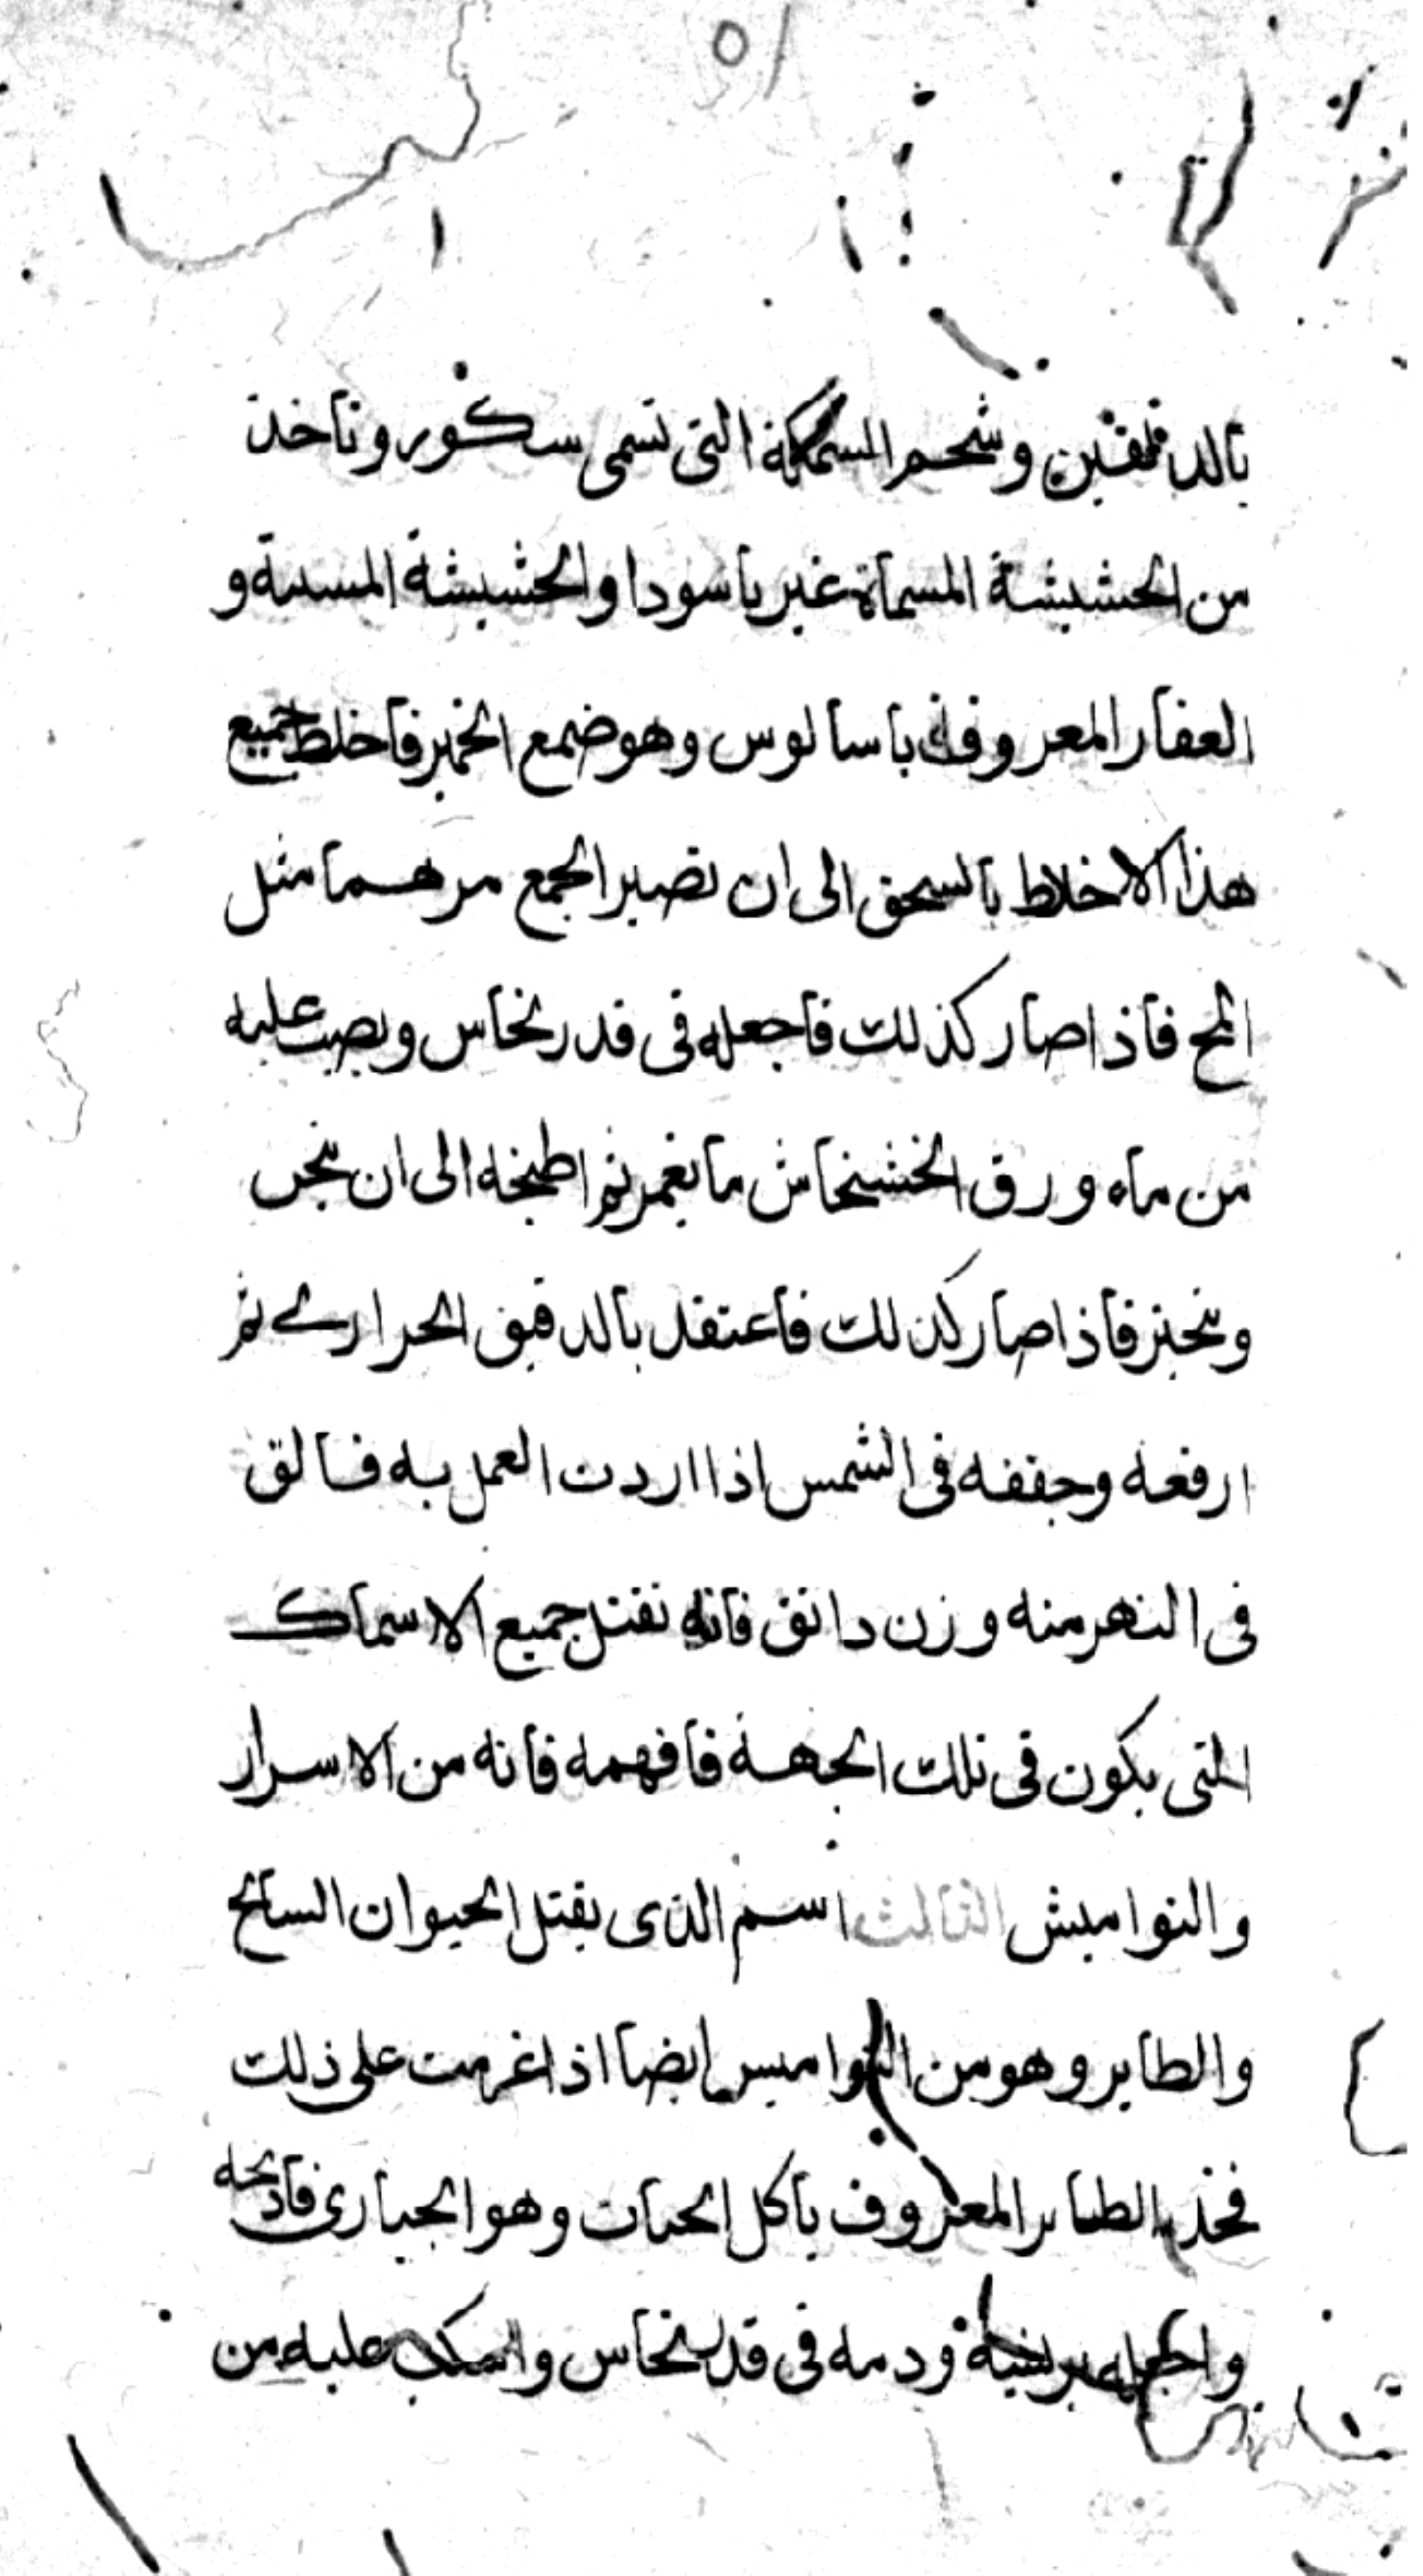 بالدقلقين وشحم السمكة التى تسمى سكور وتاخذ
من الحشيشة المسماة غبرباسودا والحشيشة و
العقار المعروف باسالوس وهو ضمع الخمير فاخلط جميع
هذا الاخلاط بالسحق الى ان تصير الجمع مرهما مثل
المح فاذا صار كذلك فاجعله فى قدر نحاس ويصب عليه
من ماء ورق الخشخاش ما يغمر ثم اطبخه الى ان
فاذا صار كذلك فاعتقد بالدقيق الحرارى ثم
ارفعه وجففه فى الشمس اذا اردت العمل به فالق
فى النهر منه وزن دانق فانه تقتل جميع الاسماك
التى يكون فى تلك الجهة فافهمه فانه من الاسرار
والنواميش الثالث اسم الذى يقتل الحيوان السايح
والطاير وهو من النواميس ايضا اذا عزمت على ذلك
فخذ الطاير المعروف باكل الحيات وهو الحبارى فاذبحه
واجعله ودمه فى قدر نحاس واسكب عليه من